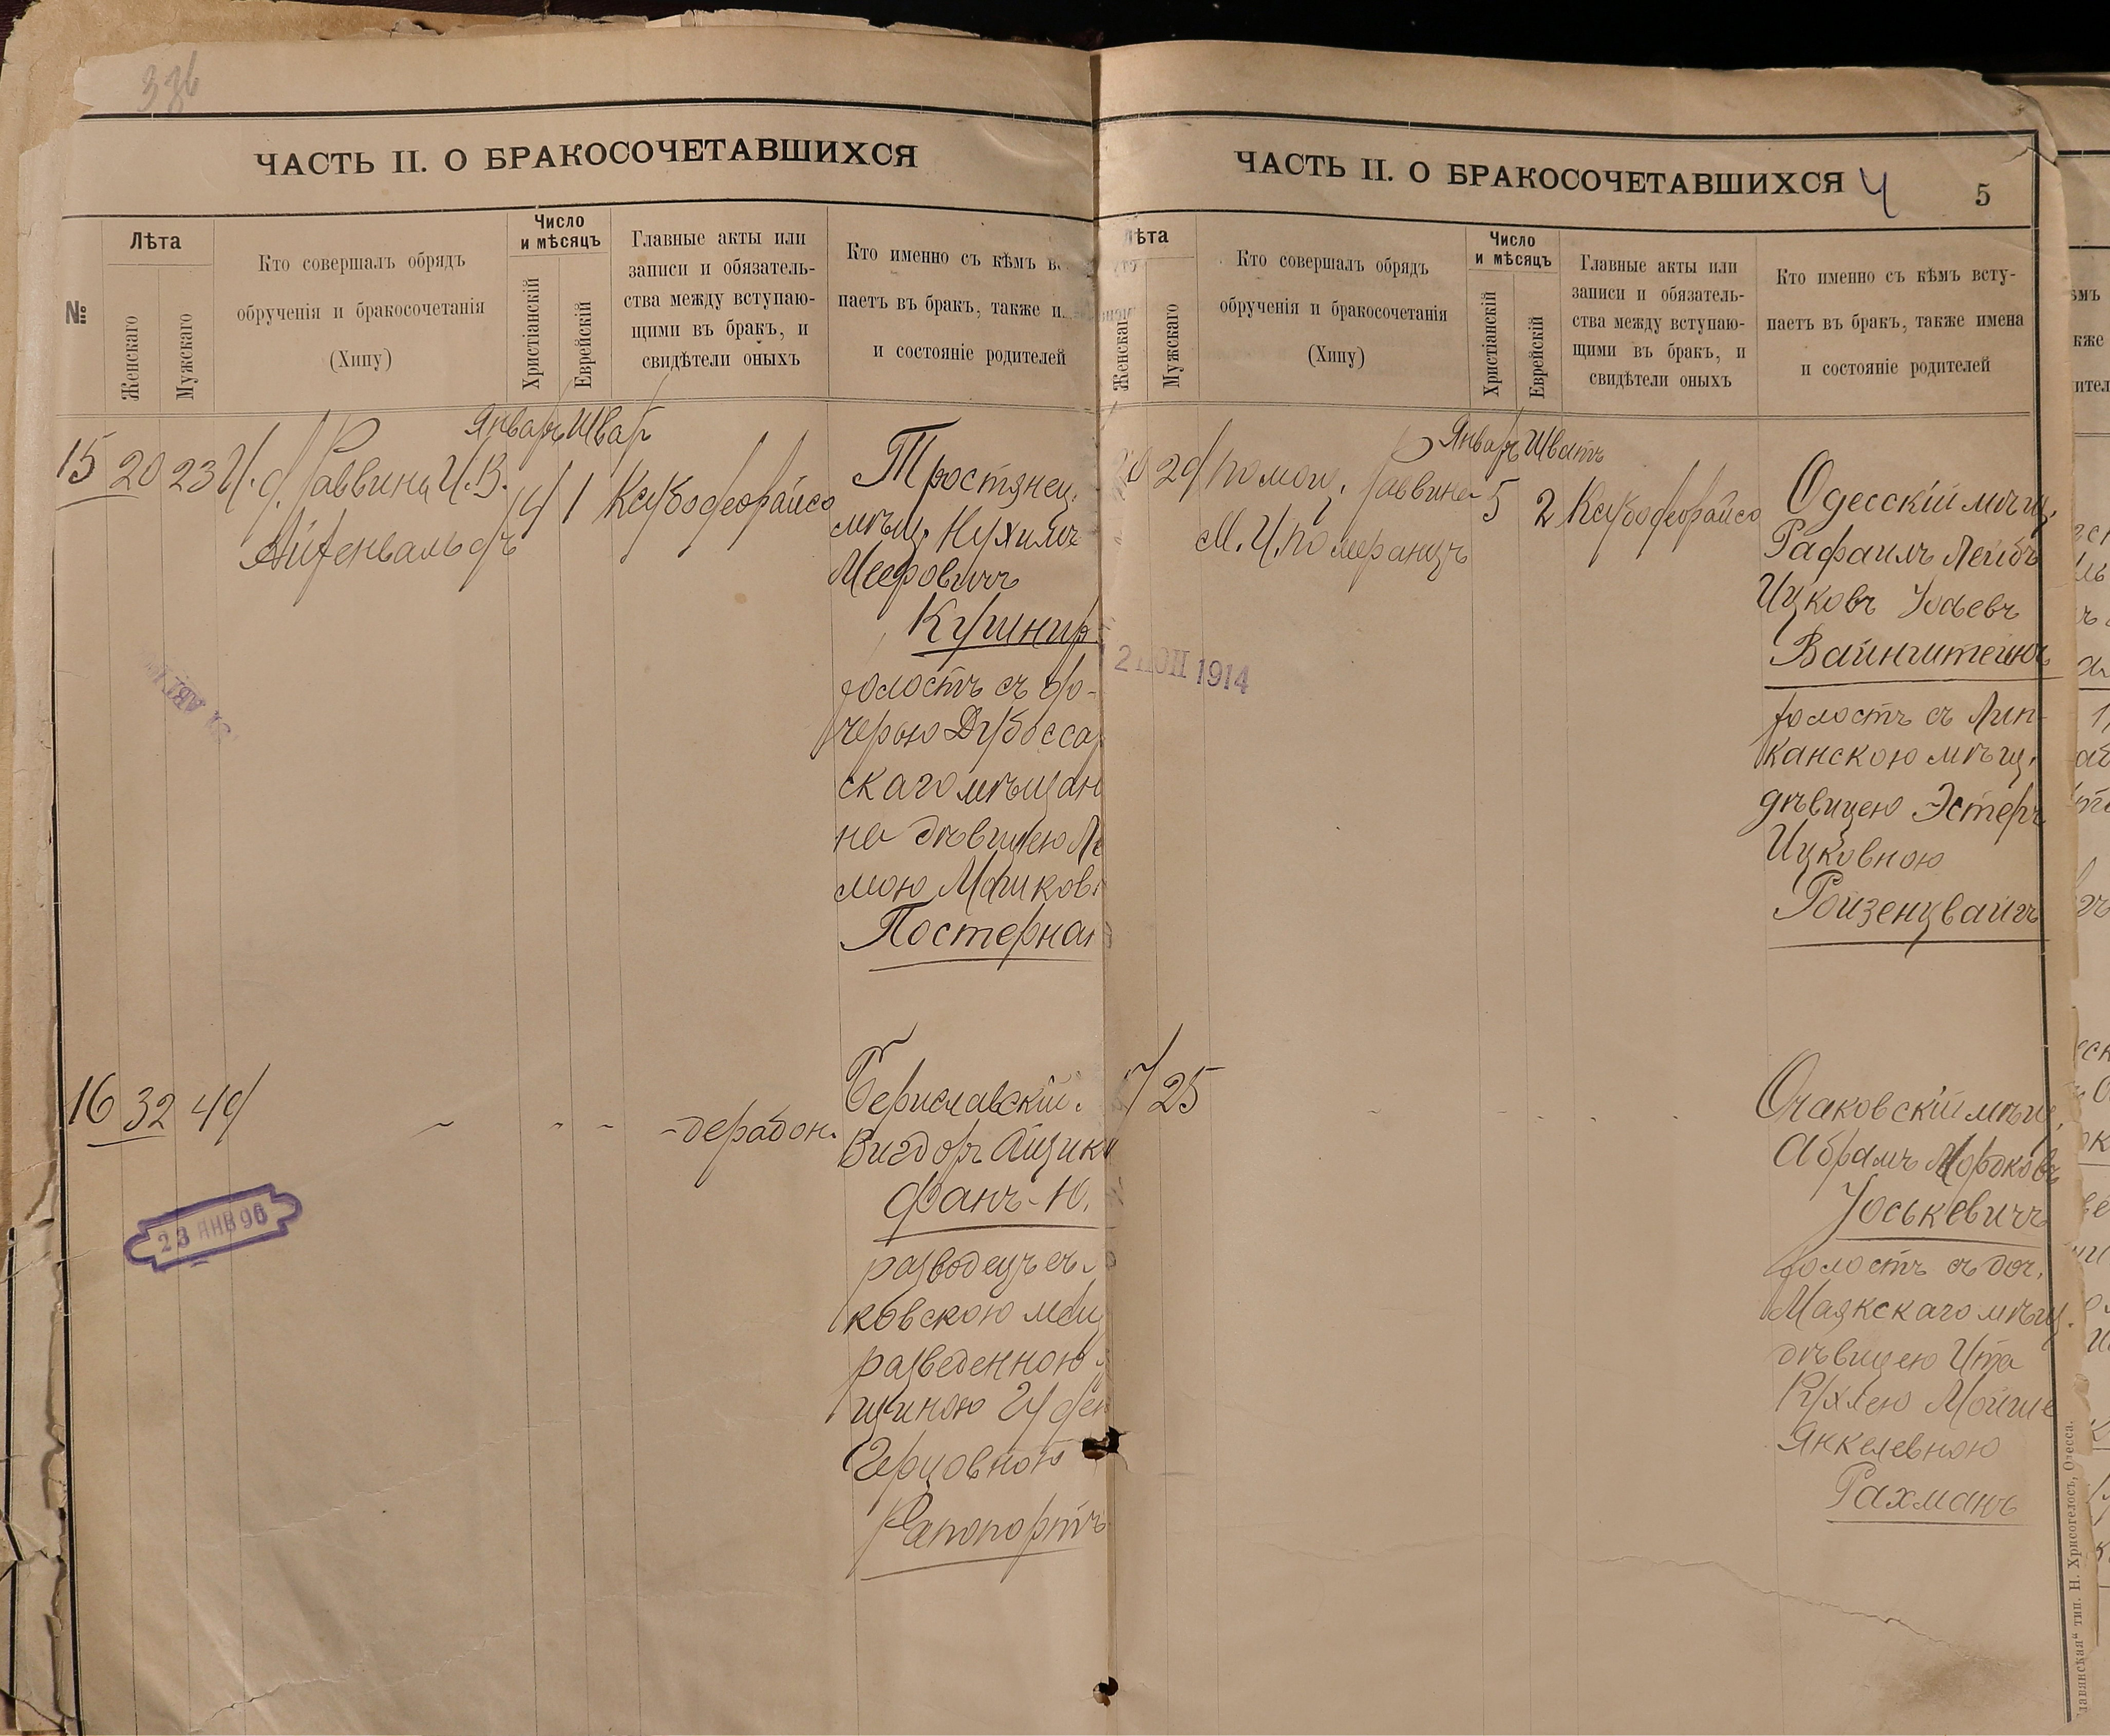 336
ЧАСТЬ II. О БРАКОСОЧЕТАВШИХСЯ
№
Лѣта
Женскаго
Мужскаго
Кто совершалъ обрядъ
обрученія и бракосочетанія
(Хипу)
Число
и мѣсяцъ
Христіанскій
Еврейскій
Главные акты или
записи и обязатель-
ства между вступаю-
щими въ бракъ, и
свидѣтели оныхъ
Кто именно съ кѣмъ в
паетъ въ бракъ, также и
и состояніе родителей
Январь
15 20 23 И. д. Раввина И. В.
Айзенвальдъ
4 1
Тростянец.
мѣщ. Нухимъ
Мееровичъ
Кушнир
холостъ съ до-
черью Дубосса
скаго мѣщан
на дѣвицею
мою
Постерна
16 32 49
- - - - дерабон.
Бериславскій
Вигдоръ
Фанъ-Ю.
разводецъ съ
ковскою мѣщ
разведенною
щиною
Герцовною
Рапопортъ
23 ЯНВ 96
ЧАСТЬ II. О БРАКОСОЧЕТАВШИХСЯ
4
5
ѣта
Женскаг
Мужскаго
Кто совершалъ обрядъ
обрученія и бракосочетанія
(Хипу)
Число
и мѣсяцъ
Христіанскій
Еврейскій
Главные акты или
записи и обязатель-
ства между вступаю-
щими въ бракъ, и
свидѣтели оныхъ
Кто именно съ кѣмъ всту-
паетъ въ бракъ, также имена
и состояніе родителей
Январь Шватъ
29 Помощ. Раввина
М. И. Померанцъ
5 2
Одесскій мѣщ.
Рафаилъ Лейбъ
Ицковъ Іосьевъ
Вайнштейнъ
холостъ съ Лип-
канскою мѣщ.
дѣвицею Эстеръ
Ицковною
Ройзенцвайгъ
1914
25
- - - -
Очаковскій мѣщ.
Абрамъ Мордковъ
Іоськевичъ
холостъ съ доч.
Маякскаго мѣщ.
дѣвицею Ита
Рухлею Мойше
Янкелевною
Рахманъ
тип. Н. Хрисогелосъ, Одесса.